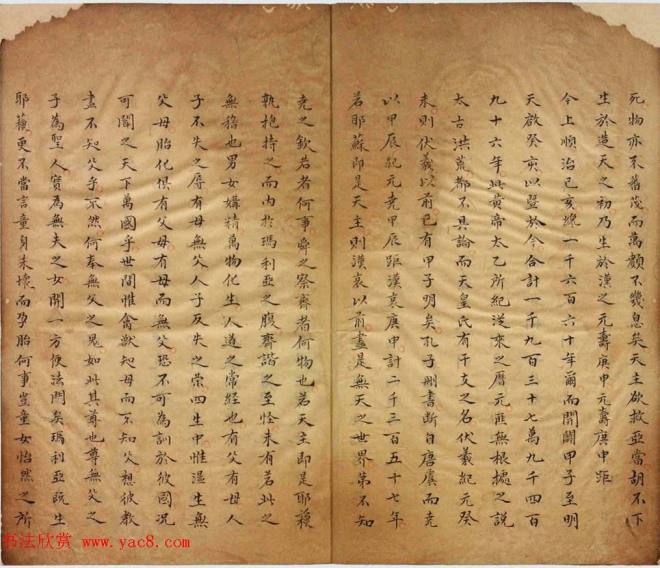 死物亦不蕃茂而萬類不幾息矣天主欲救亟當胡不下
生於造天之初乃生於漢之元壽庚申元壽庚申距
今上順治己亥纔一千六百六十年爾而開闢甲子至明
天啟癸亥以暨於今合計一千九百三十七萬九千四百
九十六年此黃帝太乙所紀從來之曆元匪無根據之說
太古洪荒都不具論而天皇氏有干支之名伏羲紀元癸
未則伏羲以前已有甲子明矣孔子刪書斷自唐虞而堯
以甲辰紀元堯甲辰距漢哀庚申計二千三百五十七年
若耶蘇即是天主則漢哀以前盡是無天之世界第不知
堯之欽若者何事舜之察齊者何物也若天主即是耶穌
孰抱持之而內於瑪利亞之腹齊諧之至怪未有若此之
無稽也男女媾精萬物化生人道之常經也有父有母人
子不失之辱有母無父人子反失之榮四生中惟濕生無
父母胎化俱有父母有母而無父恐不可為訓於彼國況
可聞之天下萬國乎世間惟禽獸知母而不知父想彼教
盡不知父乎不然何奉無父之鬼如此其尊也尊無父之
子為聖人實為無夫之女開一方便法門矣瑪利亞既生
耶穌更不當言童身未壞而孕胎何事豈童女怡然之所
书法欣赏 www.yac8.com